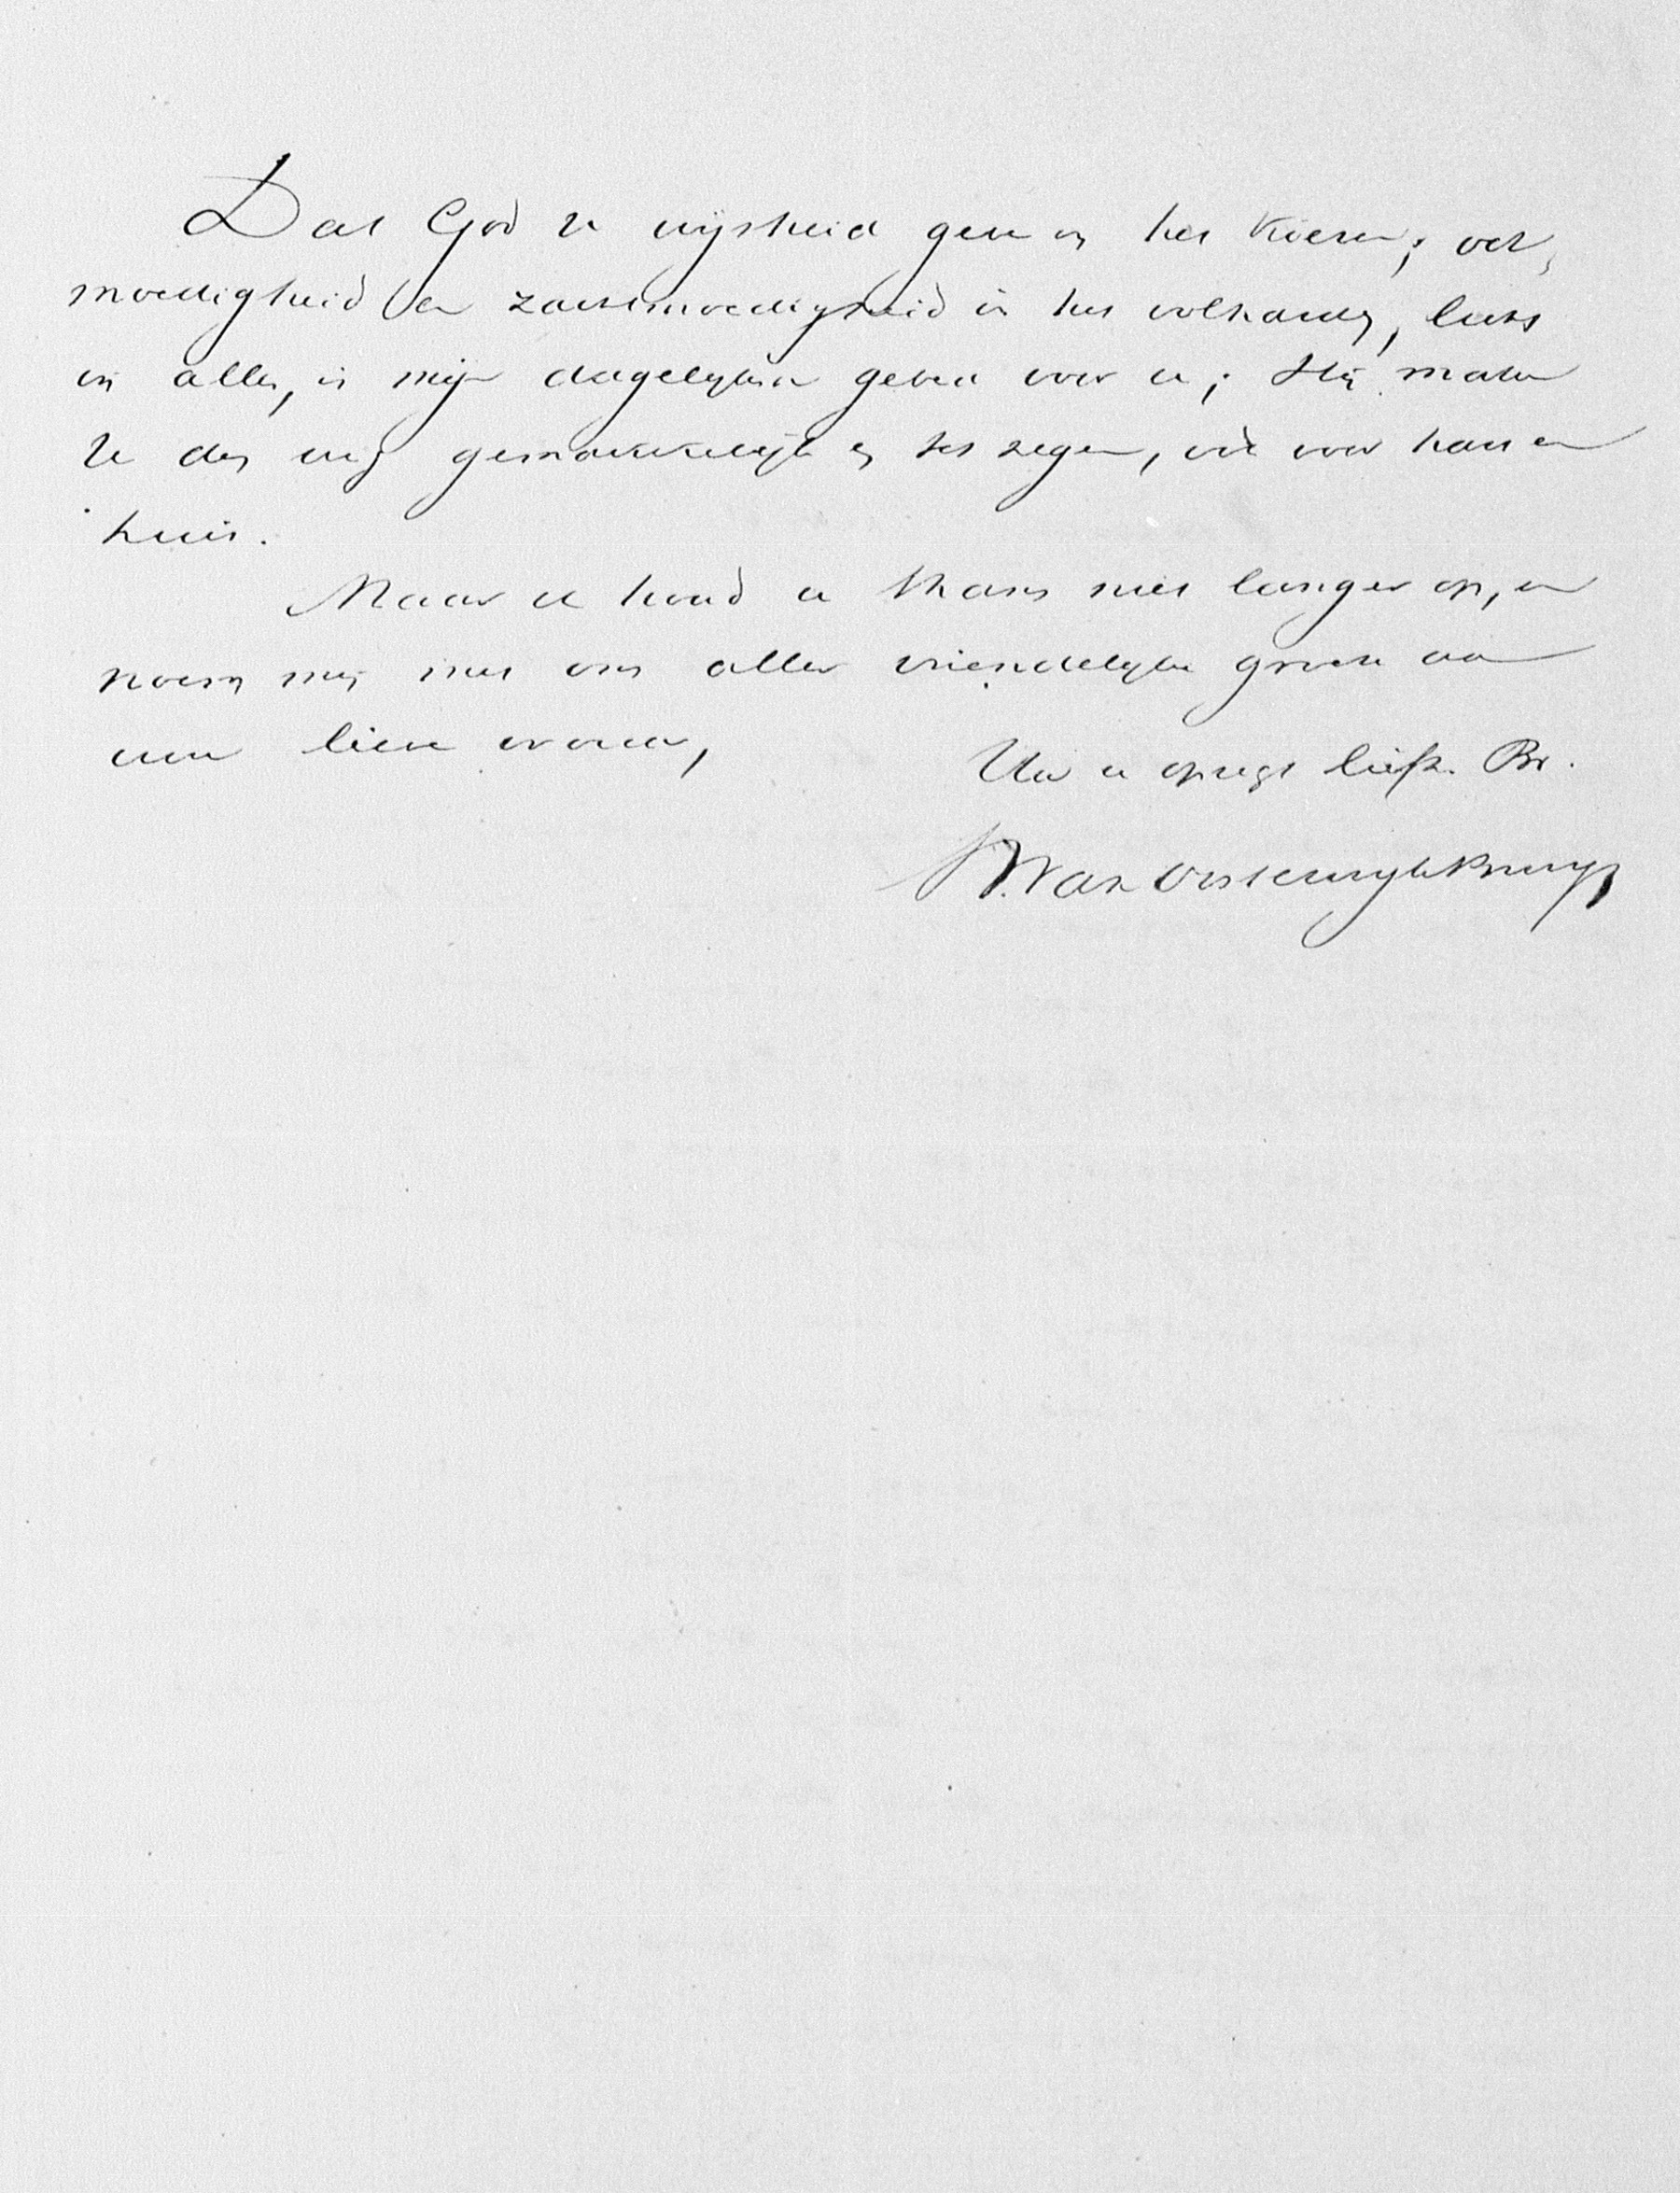 Dat God U wijsheid geve in het kiezen; oot,
moedigheid en zachtmoedigheid in het volharden, liefde
in alles, is mijn dagelijksch gebed voor u; Hij make
U den weg gemakkelijk en ten zegen, ook voor hart en
huis.
Maar ik houd u thans niet langer op, en
noem mij met ons aller vriendelyke groete aan
uwe lieve vrouw,
Uw u opregt liefh. Br.
van Oosterwijk Bruyn